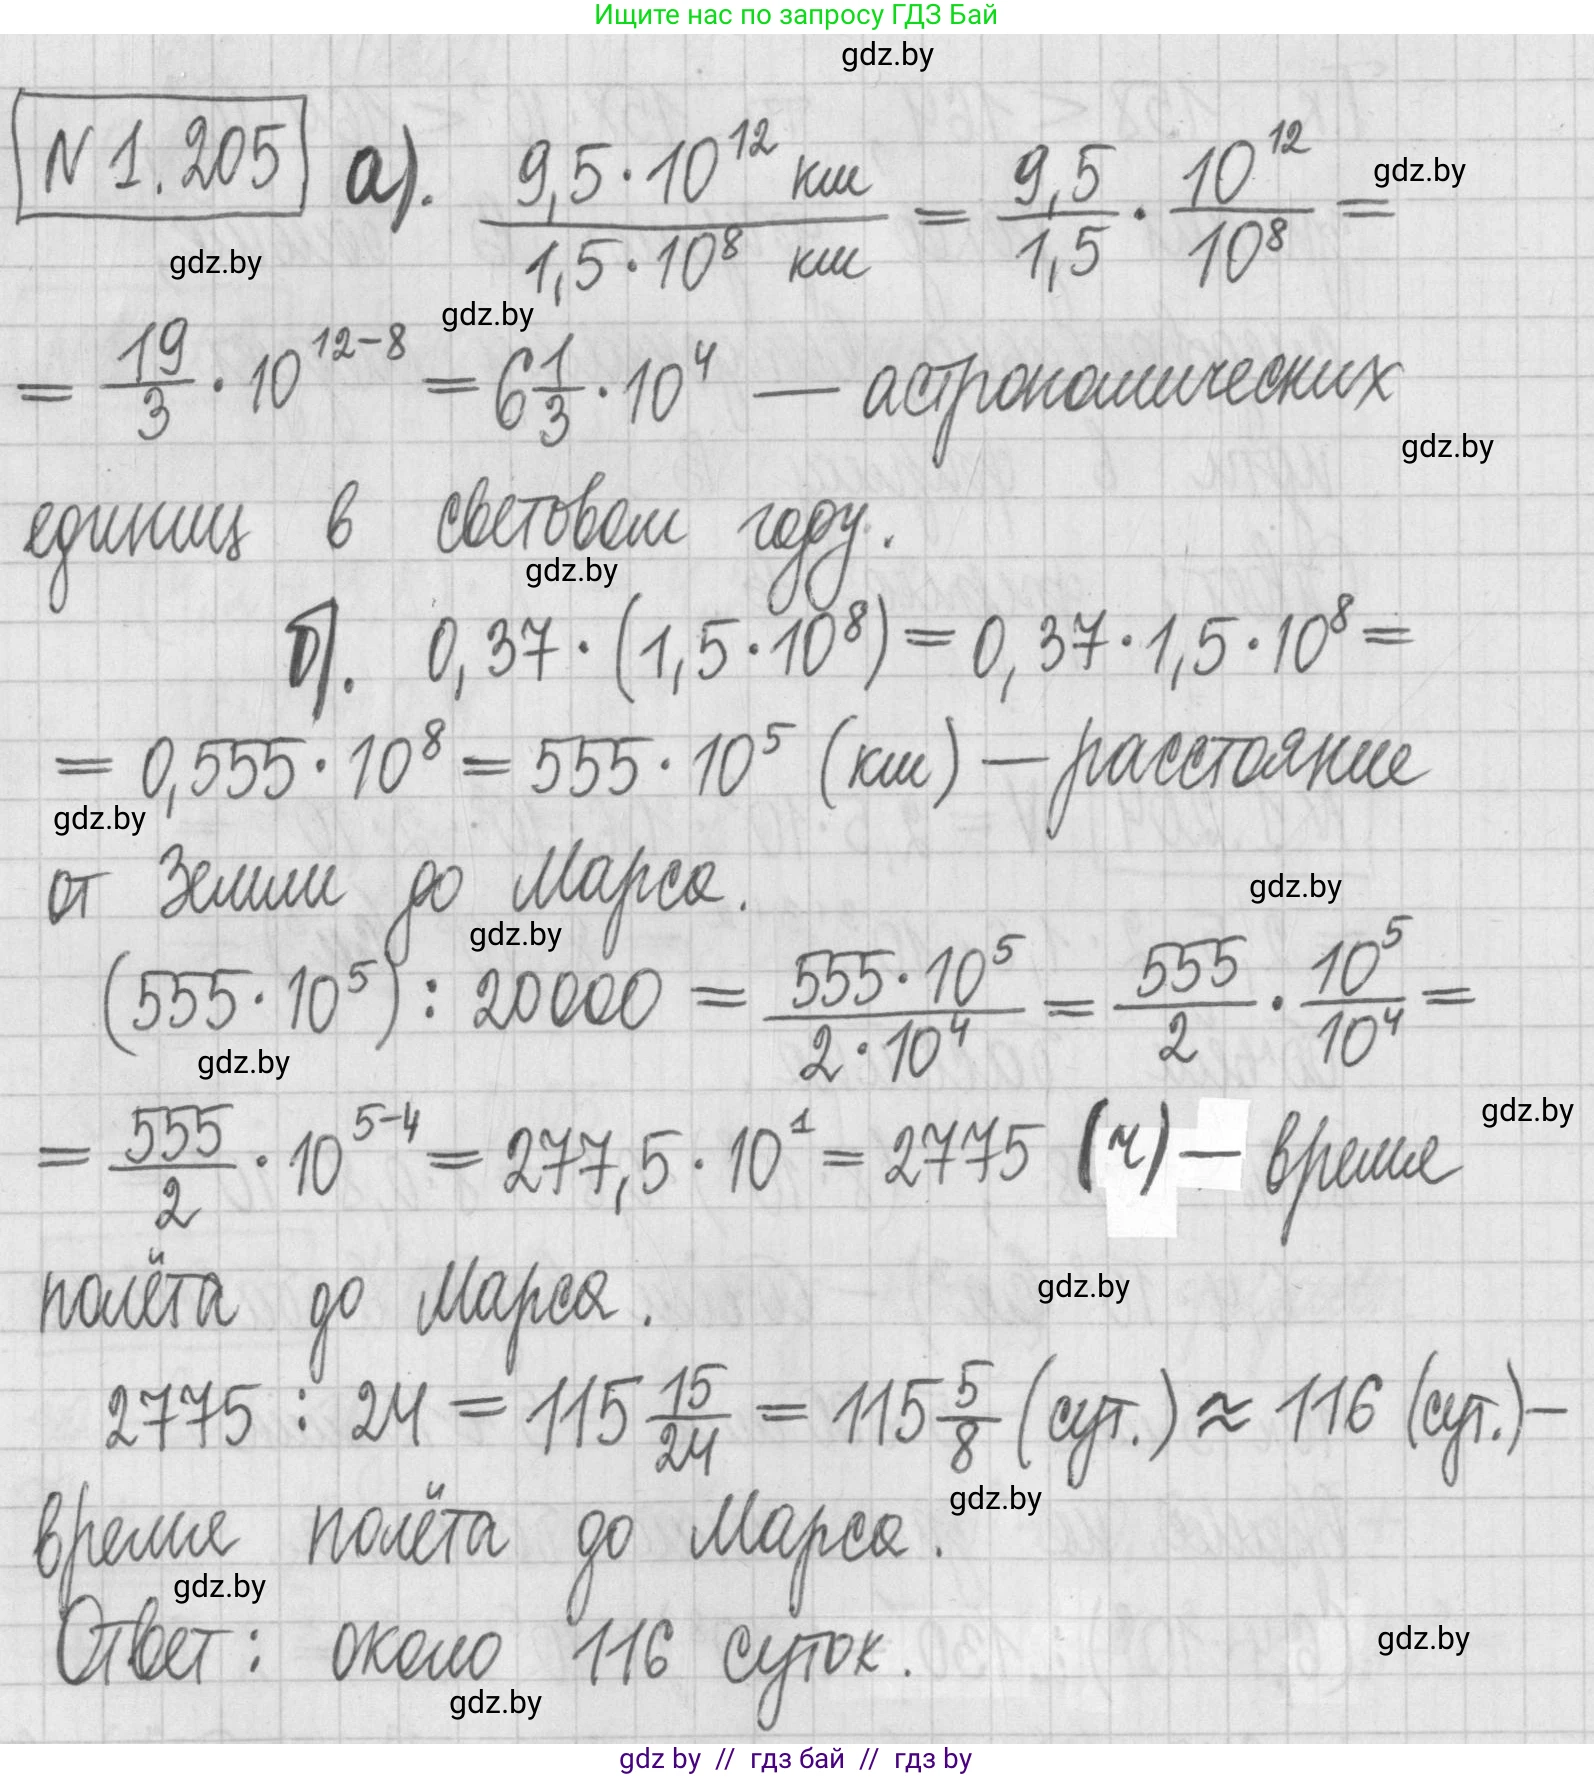 Ищите нас по запросу ГДЗ Бай
gdz.by
N 1.205 а). 9,5·10^12 км / 1,5·10^8 км = 9,5/1,5 · 10^12/10^8 =
gdz.by
gdz.by
gdz.by
= 19/3 · 10^(12-8) = 6 1/3 · 10^4 — астрономических
gdz.by
единиц в световом году.
gdz.by
б). 0,37·(1,5·10^8) = 0,37·1,5·10^8 =
= 0,555·10^8 = 555·10^5 (км) — расстояние
gdz.by
от Земли до Марса.
gdz.by
gdz.by
(555·10^5) : 20000 = 555·10^5 / 2·10^4 = 555/2 · 10^5/10^4 =
gdz.by
= 555/2 · 10^(5-4) = 277,5·10^1 = 2775 (ч) — время
gdz.by
полёта до Марса.
gdz.by
2775 : 24 = 115 15/24 = 115 5/8 (сут.) ≈ 116 (сут.) —
gdz.by
время полёта до Марса.
gdz.by
Ответ: около 116 суток.
gdz.by
gdz.by
gdz by // гдз бай // гдз by